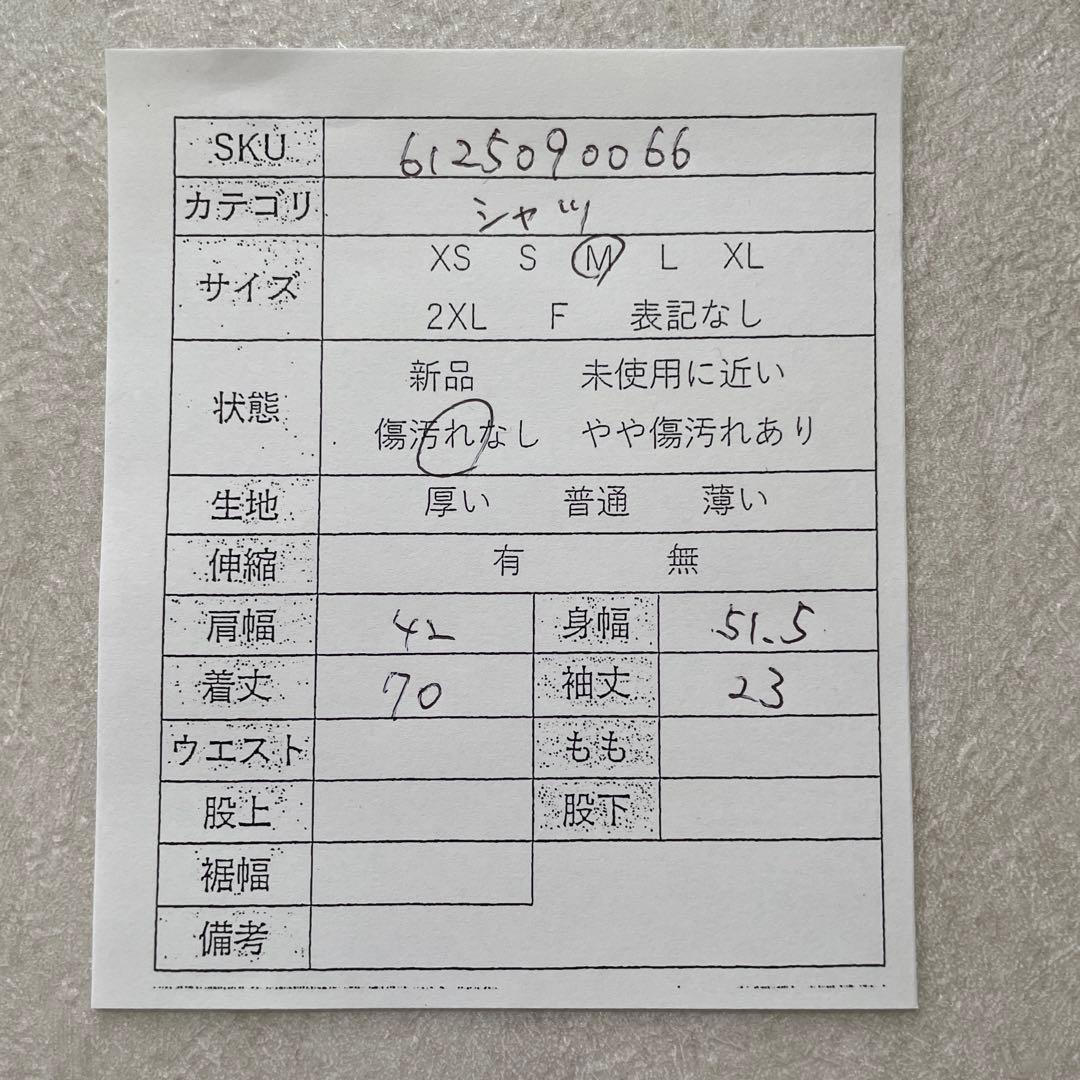 SKU 6125090066
カテゴリ シャツ
サイズ XS S M L XL
2XL F 表記なし
状態 新品 未使用に近い
傷汚れなし やや傷汚れあり
生地 厚い 普通 薄い
伸縮 有 無
肩幅 42 身幅 51.5
着丈 70 袖丈 23
ウエスト もも
股上 股下
裾幅
備考